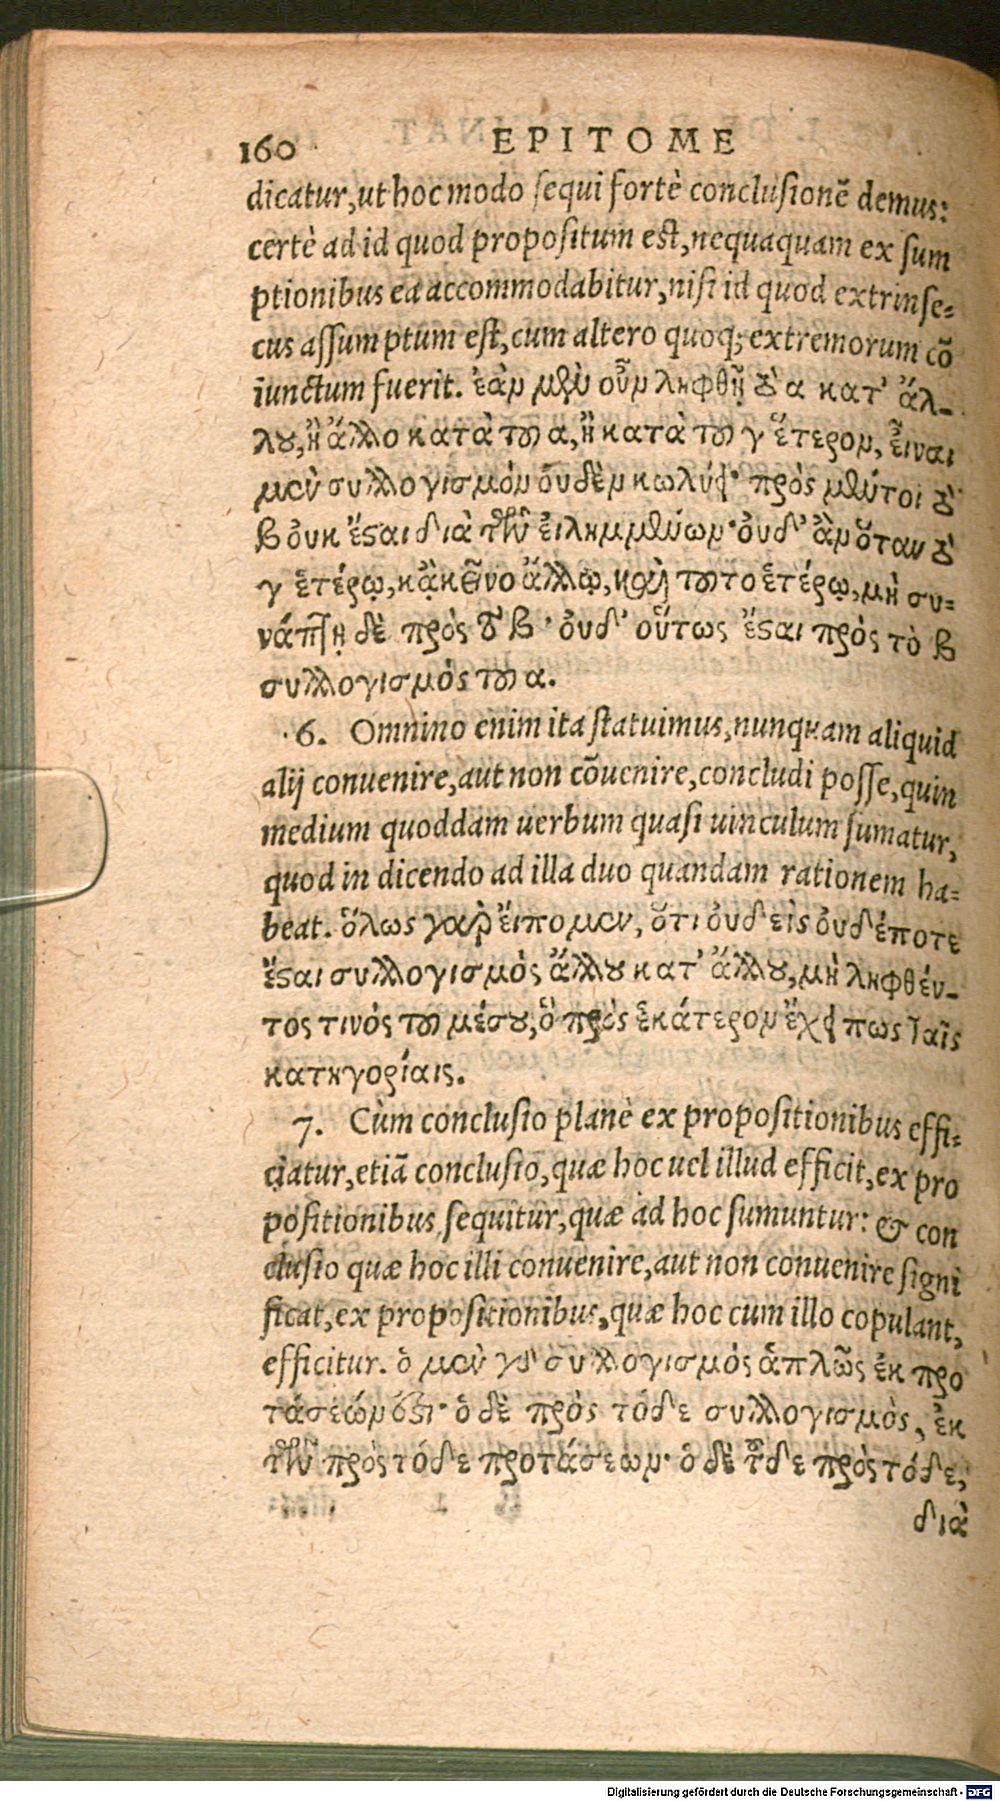 160 EPITOME
dicatur, ut hoc modo sequi fortè conclusionē demus:
certè ad id quod propositum est, nequaquam ex sum
ptionibus ea accommodabitur, nisi id quod extrinse-
cus assumptum est, cum altero quoq; extremorum cō
iunctum fuerit. ἐὰν μὲν οὖν ληφθῇ τὸ α κατ' ἄλ-
λου, ἢ ἄλλο κατὰ τοῦ α, ἢ κατὰ τοῦ γ ἕτερον, εἶναι
μὲν συλλογισμὸν οὐδὲν κωλύει· πρὸς μέντοι τὸ
β οὐκ ἔσται διὰ τῶν εἰλημμένων· οὐδ' ἂν ὅταν τὸ
γ ἑτέρῳ, κἀκεῖνο ἄλλῳ, καὶ τοῦτο ἑτέρῳ, μὴ συ-
νάπτῃ δὲ πρὸς τὸ β· οὐδ' οὕτως ἔσται πρὸς τὸ β
συλλογισμὸς τοῦ α.
6. Omnino enim ita statuimus, nunquam aliquid
alij conuenire, aut non cōuenire, concludi posse, quin
medium quoddam uerbum quasi uinculum sumatur,
quod in dicendo ad illa duo quandam rationem ha-
beat. ὅλως γὰρ εἴπομεν, ὅτι οὐδεὶς οὐδέποτε
ἔσται συλλογισμὸς ἄλλου κατ' ἄλλου, μὴ ληφθέν-
τος τινὸς τοῦ μέσου, ὃ πρὸς ἑκάτερον ἔχει πως ταῖς
κατηγορίαις.
7. Cùm conclusio planè ex propositionibus effi-
ciatur, etiā conclusio, quæ hoc uel illud efficit, ex pro
positionibus sequitur, quæ ad hoc sumuntur: & con
clusio quæ hoc illi conuenire, aut non conuenire signi
ficat, ex propositionibus, quæ hoc cum illo copulant,
efficitur. ὁ μὲν γὰρ συλλογισμὸς ἁπλῶς ἐκ προ
τάσεών ἐστι· ὁ δὲ πρὸς τόδε συλλογισμὸς, ἐκ
τῶν πρὸς τόδε προτάσεων· ὁ δὲ τοῦδε πρὸς τόδε,
διὰ
Digitalisierung gefördert durch die Deutsche Forschungsgemeinschaft - DFG